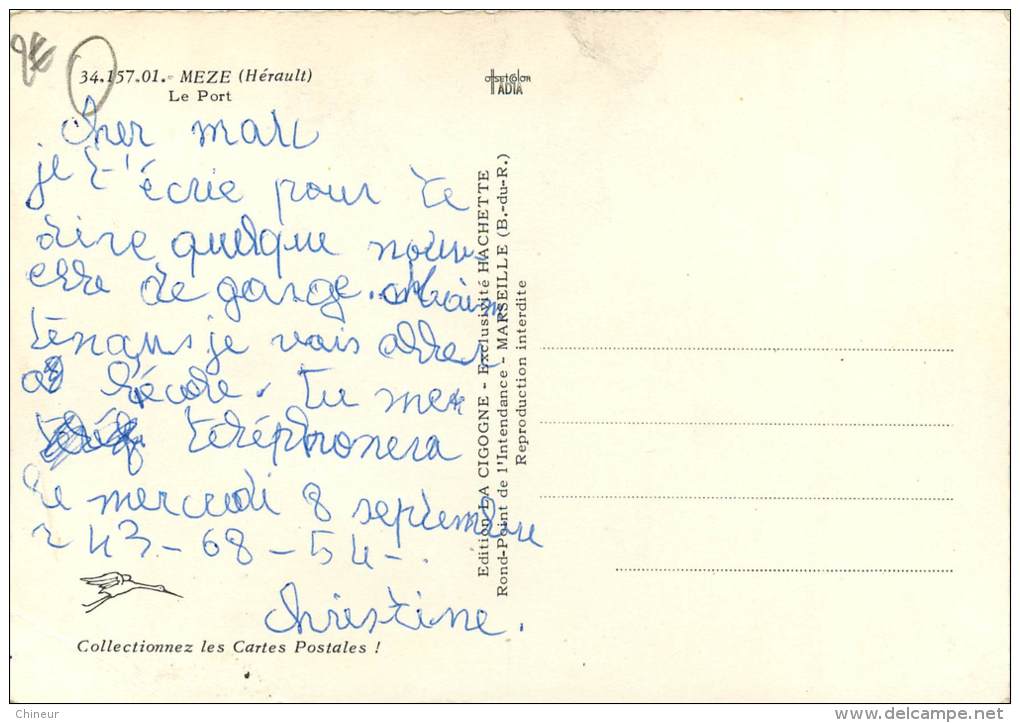 2€
34.157.01. - MEZE (Hérault)
Le Port
OFFSETCOLOR
IADIA
Cher marc
je t'écrie pour te
dire quelque nouv-
elle de gasge. Main
tenans je vais aller
a l'école. Tu me
téléphonera
le mercredi 8 septembre
43-68-54-.
Christine.
Edition LA CIGOGNE - Exclusivité HACHETTE
Rond-Point de l'Intendance - MARSEILLE (B.-du-R.)
Reproduction interdite
Collectionnez les Cartes Postales !
Chineur
www.delcampe.net